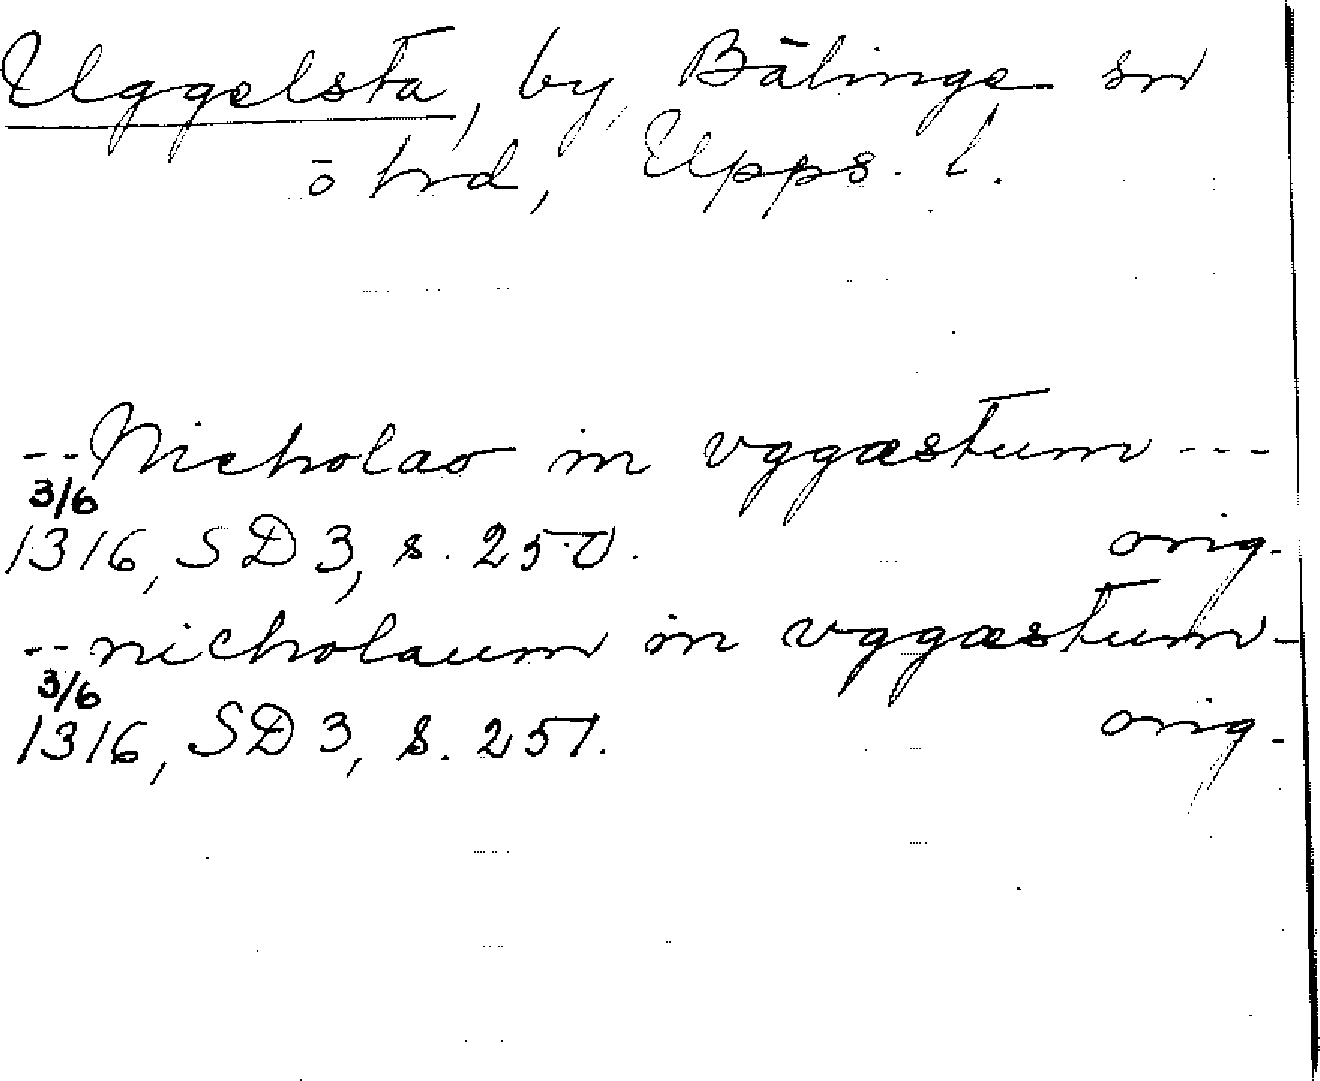 Uggelsta, by, Bälinge sn
o hrd, Upps. l.
-- Nicholao in vggæstum ---
3/6
1316, SD 3, s. 250. orig.
-- nicholaum in vggæstum -
3/6
1316, SD 3, s. 251. orig.